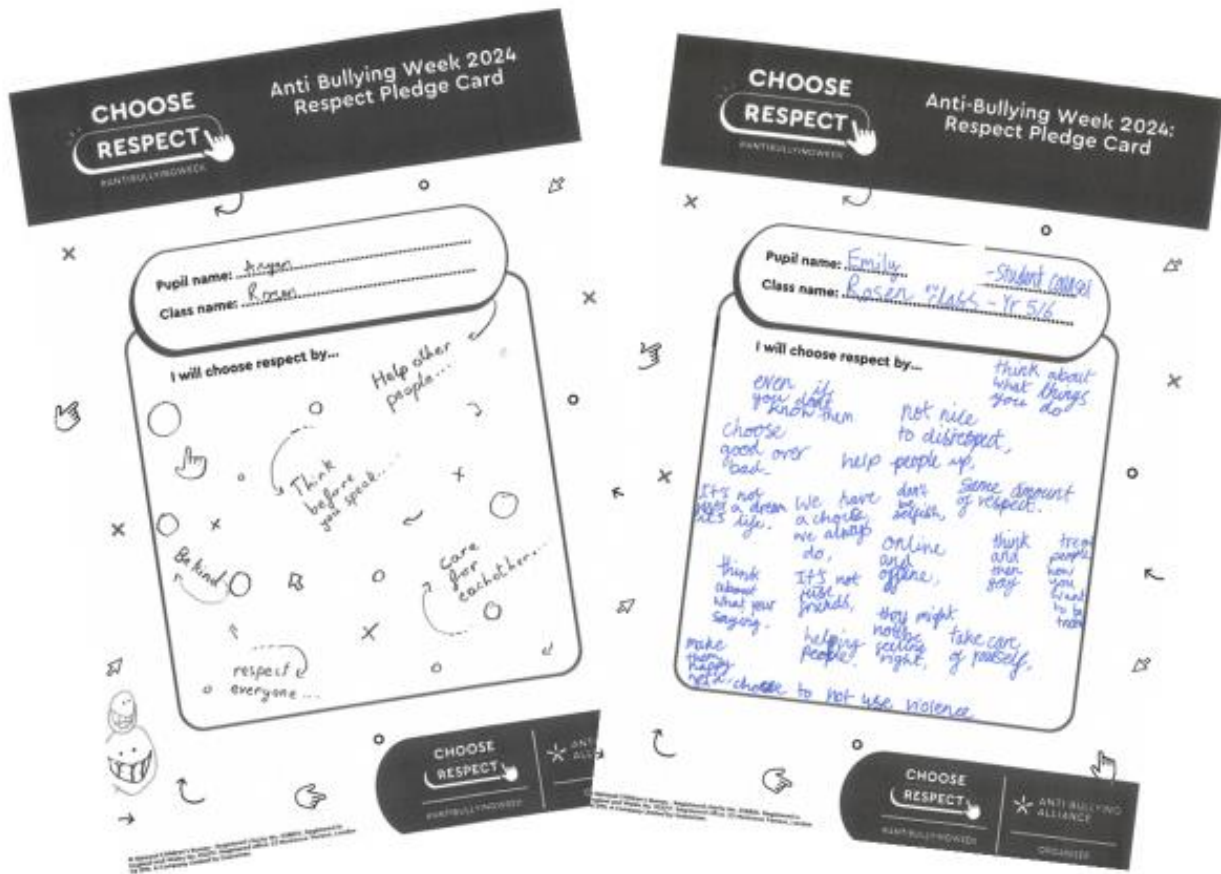 CHOOSE
RESPECT
#ANTIBULLYINGWEEK
Anti Bullying Week 2024
Respect Pledge Card
Pupil name: Aryan
Class name: Rosen
I will choose respect by...
Help other
people...
Think
before
you speak....
Be kind
care
for
eachother...
respect
everyone...
CHOOSE
RESPECT
#ANTIBULLYINGWEEK
CHOOSE
RESPECT
#ANTIBULLYINGWEEK
Anti-Bullying Week 2024:
Respect Pledge Card
Pupil name: Emily
-Student
Class name: Rosen class - Yr 5/6
I will choose respect by...
think about
what things
you do
even if
you don't
know them
not nice
to disrespect,
choose
good over
bad.
help people up,
It's not
a dream
it's life.
We have
a choise,
we always
do,
don't
be
selfish,
Same amount
of respect.
online
and
offline,
think
and
then
say
treat
people
how
you
want
to be
think
about
what your
saying.
It's not
just
friends,
they might
not be
feeling
right,
helping
people.
take care
of yourself,
make
them
happy
choose to not use violence
CHOOSE
RESPECT
#ANTIBULLYINGWEEK
ANTI-BULLYING
ALLIANCE
ORGANISER